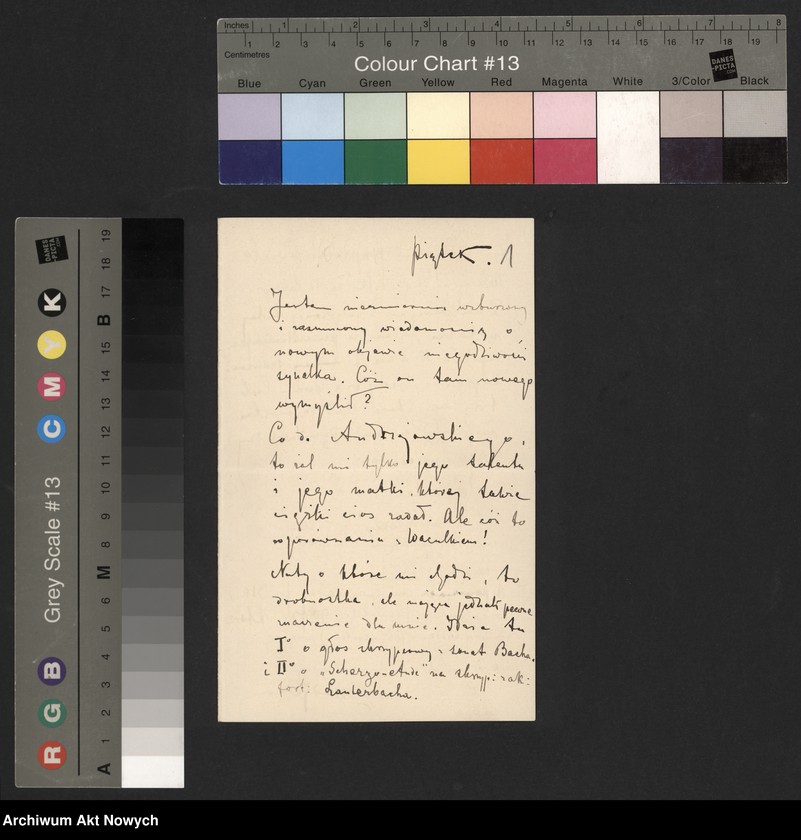 Inches 1 2 3 4 5 6 7 8
Centimetres 1 2 3 4 5 6 7 8 9 10 11 12 13 14 15 16 17 18 19
Colour Chart #13
DANES-PICTA.COM
Blue Cyan Green Yellow Red Magenta White 3/Color Black
Grey Scale #13
DANES-PICTA.COM
R G B C M Y K
A 1 2 3 4 5 6 M 8 9 10 11 12 13 14 15 B 17 18 19
piątek. 1
Jestem niezmiernie wzburzony
i zasmucony wiadomością o
nowym objawie niegodziwości
synalka. Cóż on tam nowego
wymyślił?
Co do Andrzejowskiego,
to żal mi tylko jego talentu
i jego matki, której także
ciężki cios zadał. Ale cóż to
w porównaniu z Waculkiem!
Nuty o które mi chodzi, to
drobnostka, ale mająca jednak pewne
znaczenie dla mnie. Idzie tu
I° o głos skrzypcowy z sonat Bacha.
i II° o „Scherzo-etude" na skrzyp:
fort: Lauterbacha.
Archiwum Akt Nowych